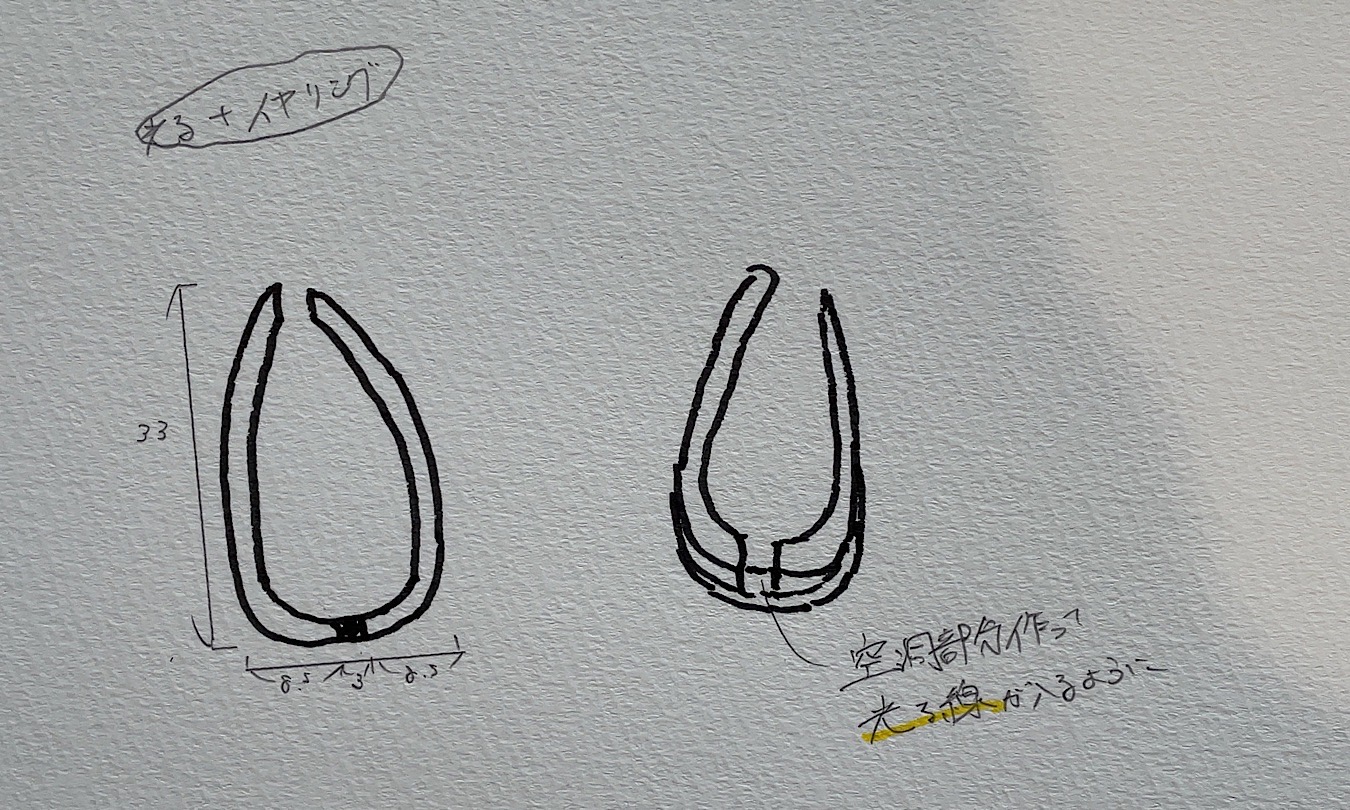 光る+イヤリング
33
8.5 3 8.5
空洞部分作って
光る線が入るように